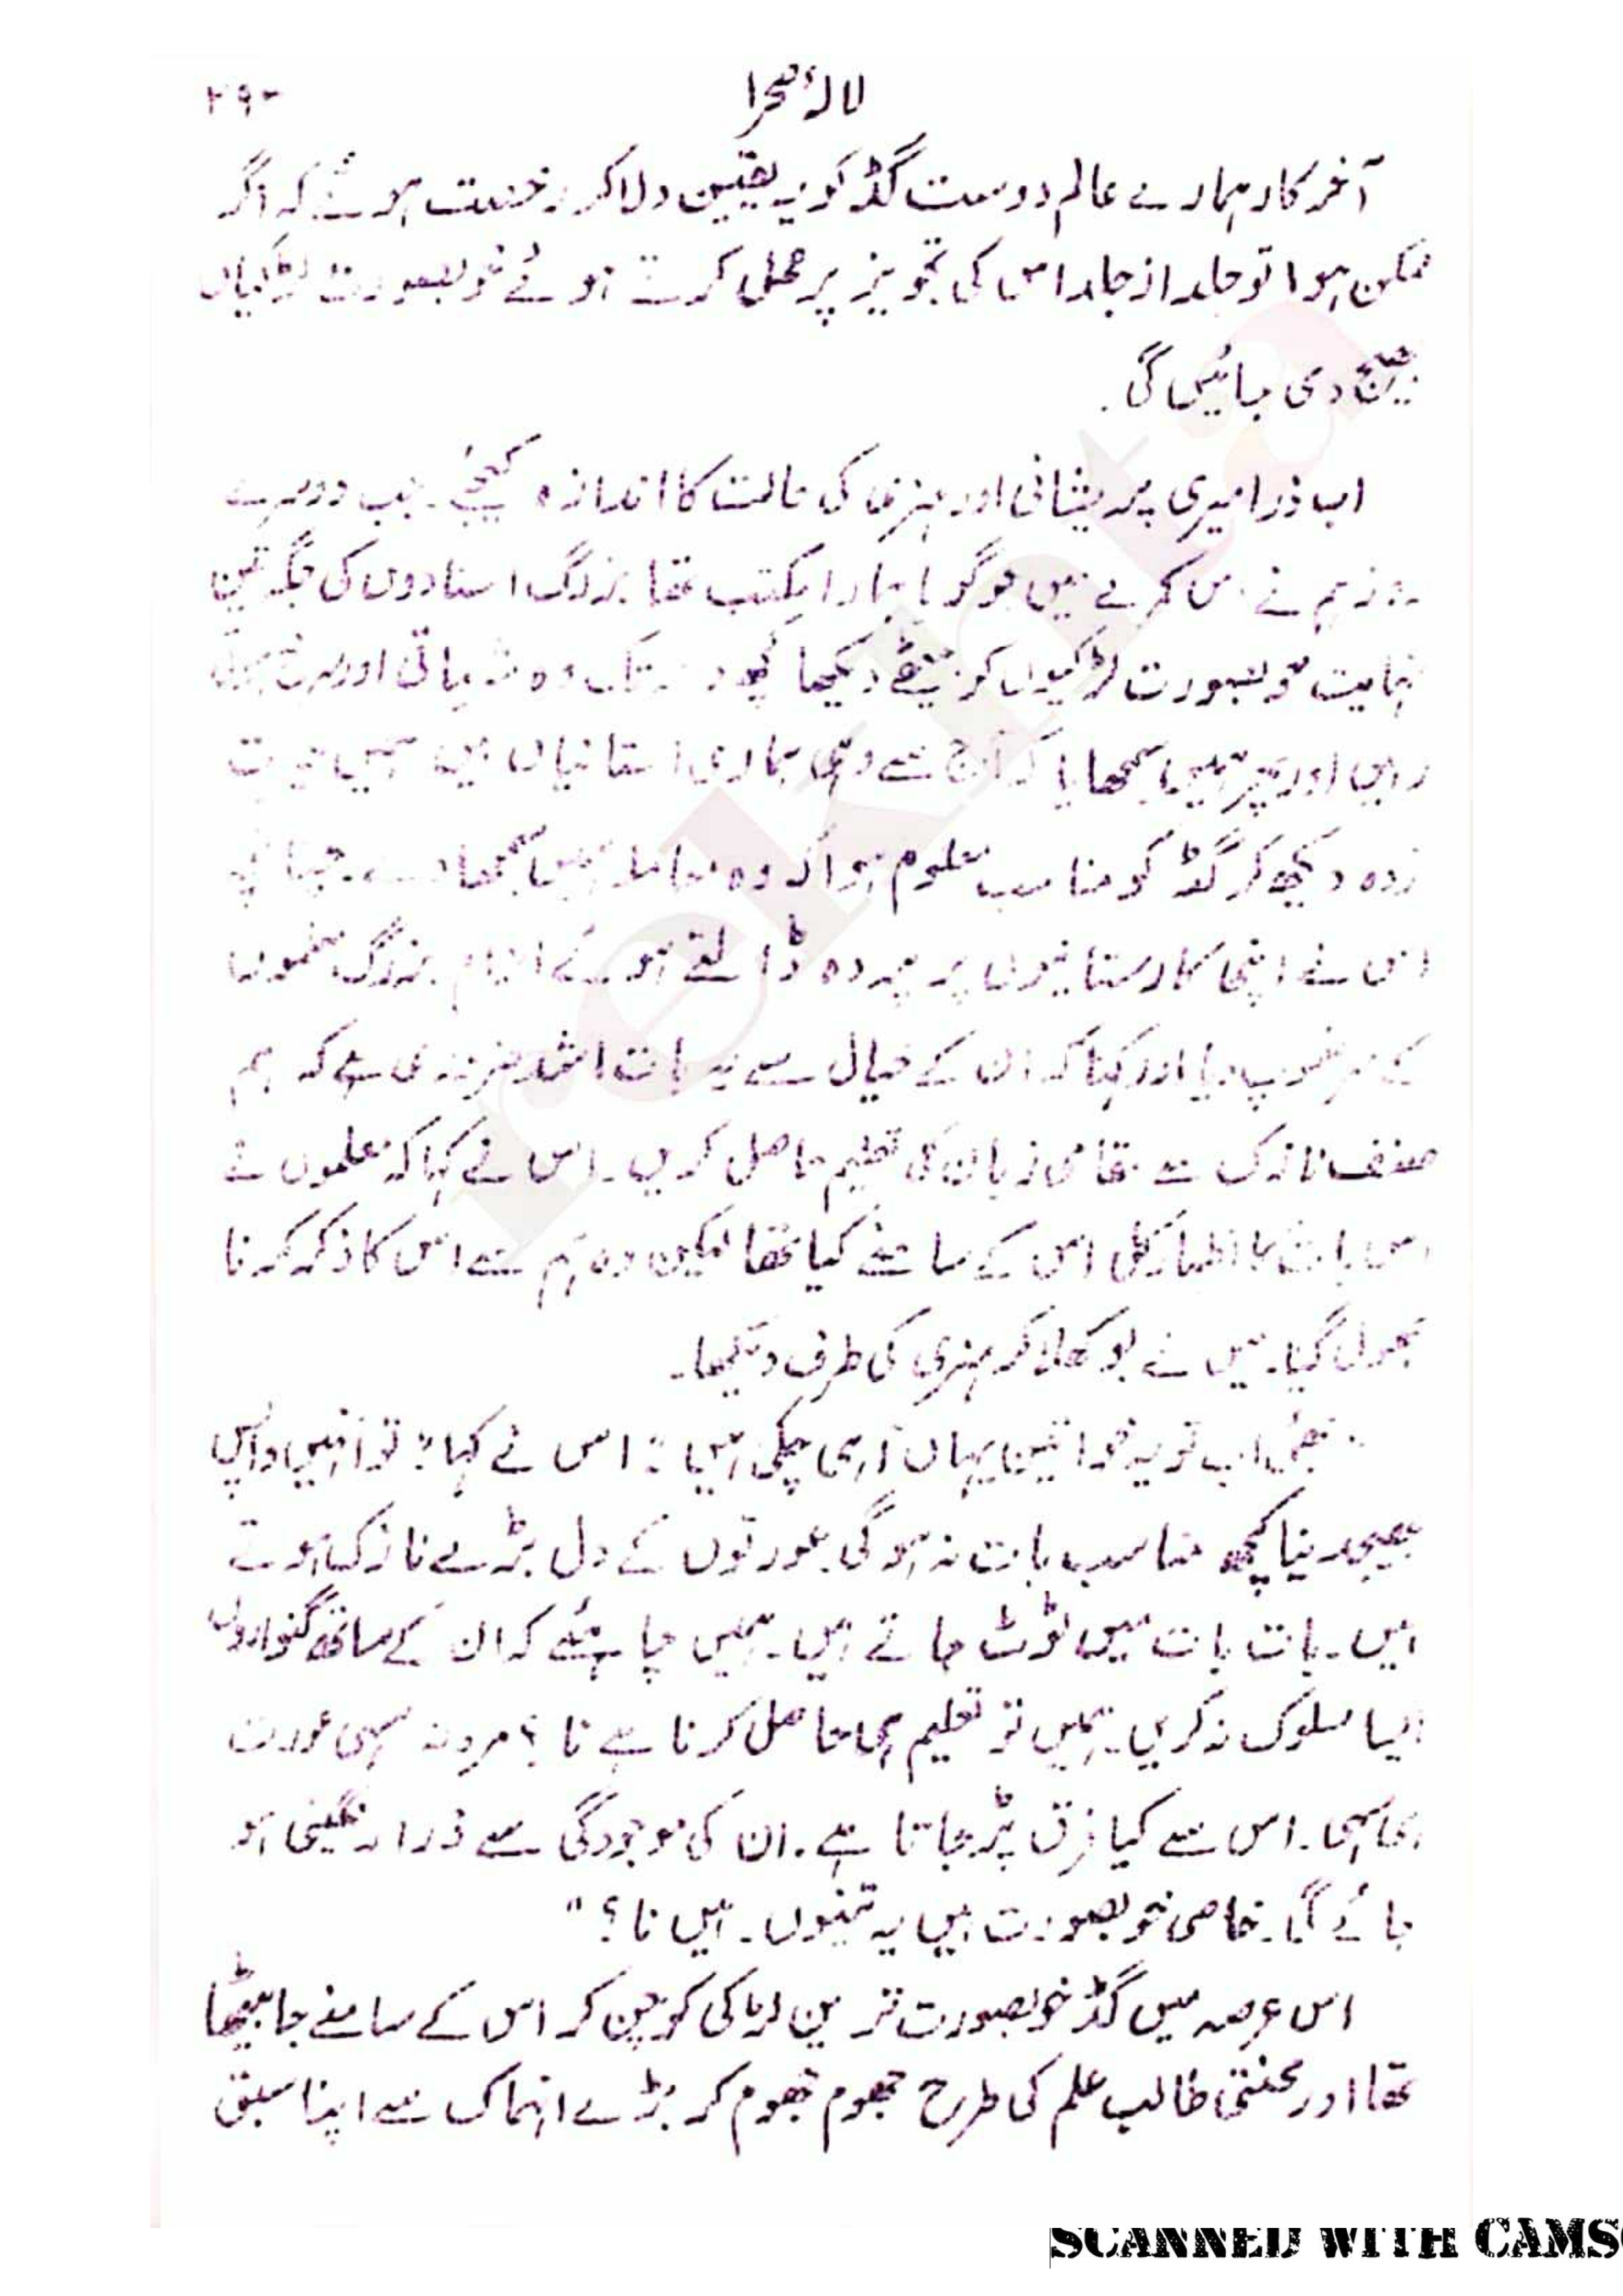 لالۂ صحرا
۲۹۰
آخر کار ہمارے عالم دوست گڈ کو یہ یقین دلا کر رخصت ہوئے کہ اگر
ممکن ہوا تو جلد از جلد اس کی تجویز پر عمل کرتے ہوئے خوبصورت لڑکیاں
بھیج دی جائیں گی۔
اب ذرا میری پریشانی اور ہنری کی حالت کا اندازہ کیجئے۔ جب دوسرے
روز ہم نے اس کمرے میں جو گویا ہمارا مکتب تھا بزرگ استادوں کی جگہ تین
نہایت خوبصورت لڑکیوں کو بیٹھے دیکھا کچھ دیر تک وہ شرماتی اور
رہیں اور پھر ہمیں سمجھایا کہ آج سے وہی ہماری استانیاں ہیں ہمیں حیرت
زدہ دیکھ کر گڈ کو مناسب معلوم ہوا کہ وہ معاملہ ہمیں سمجھا دے۔ چنانچہ
اس نے اپنی کارستانیوں پر پردہ ڈالتے ہوئے الزام بزرگ معلموں
کے سر تھوپ دیا اور کہا کہ ان کے خیال سے یہ بات اشد ضروری ہے کہ ہم
صنف نازک سے مقامی زبان کی تعلیم حاصل کریں۔ اس نے کہا کہ معلموں نے
اس بات کا اظہار کل اس کے سامنے کیا تھا لیکن وہ ہم سے اس کا ذکر کرنا
بھول گیا۔ میں نے بوکھلا کر ہنری کی طرف دیکھا۔
"بھئی اب تو یہ خواتین یہاں آ ہی چکی ہیں" اس نے کہا "تو انہیں واپس
بھیجدینا کچھ مناسب بات نہ ہو گی۔ عورتوں کے دل بڑے نازک ہوتے
ہیں۔ بات بات میں ٹوٹ جاتے ہیں۔ ہمیں چاہئے کہ ان کے ساتھ گنواروں
ایسا سلوک نہ کریں۔ ہمیں تو تعلیم ہی حاصل کرنا ہے نا؟ مرد نہ سہی عورت
ہی سہی۔ اس سے کیا فرق پڑ جاتا ہے۔ ان کی موجودگی سے ذرا رنگینی ہو
جائے گی۔ خاصی خوبصورت ہیں یہ تینوں۔ ہیں نا؟"
اس عرصہ میں گڈ خوبصورت ترین لڑکی کو چن کر اس کے سامنے جا بیٹھا
تھا اور محنتی طالب علم کی طرح جھوم جھوم کر بڑے انہماک سے اپنا سبق
rekhta
SCANNED WITH CAMS